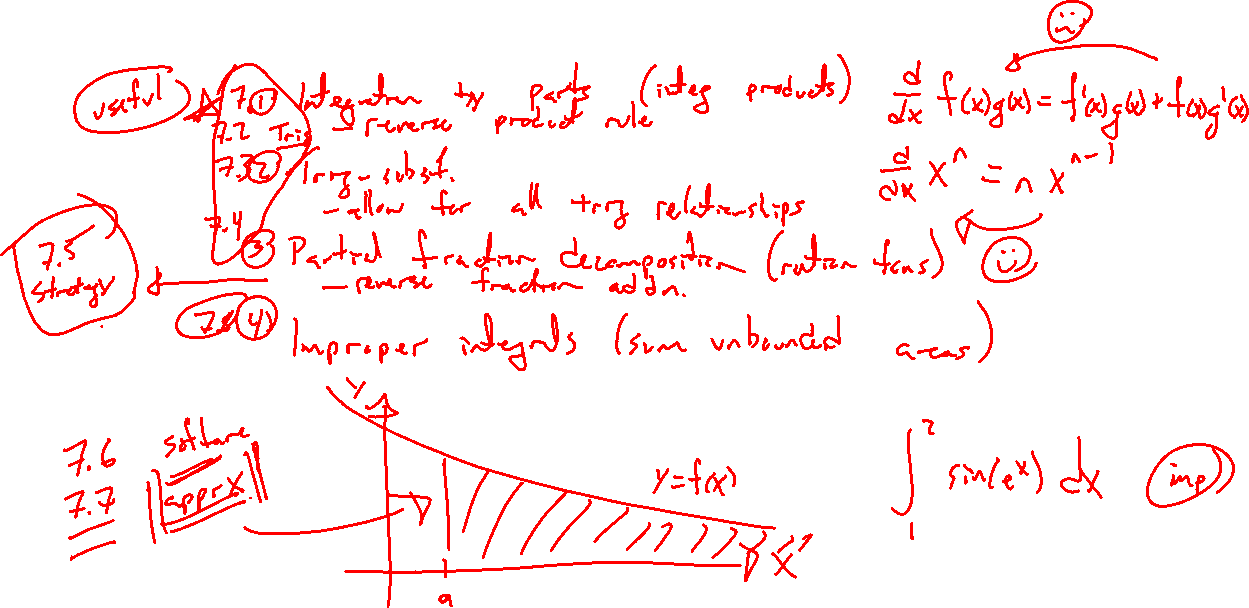 useful
7.① Integration by parts (integ products)
– reverse product rule
7.2 Trig
7.3 ② Trig-subst.
– allow for all trig relationships
7.4 ③ Partial fraction decomposition (ration fcns)
– reverse fraction addn.
7.5 strategy
7.8 ④ Improper integrals (sum unbounded areas)
d/dx f(x)g(x) = f'(x)g(x) + f(x)g'(x)
d/dx xⁿ = n xⁿ⁻¹
7.6 software
7.7 apprx
y
y=f(x)
x
a
∫₁² sin(eˣ) dx imp